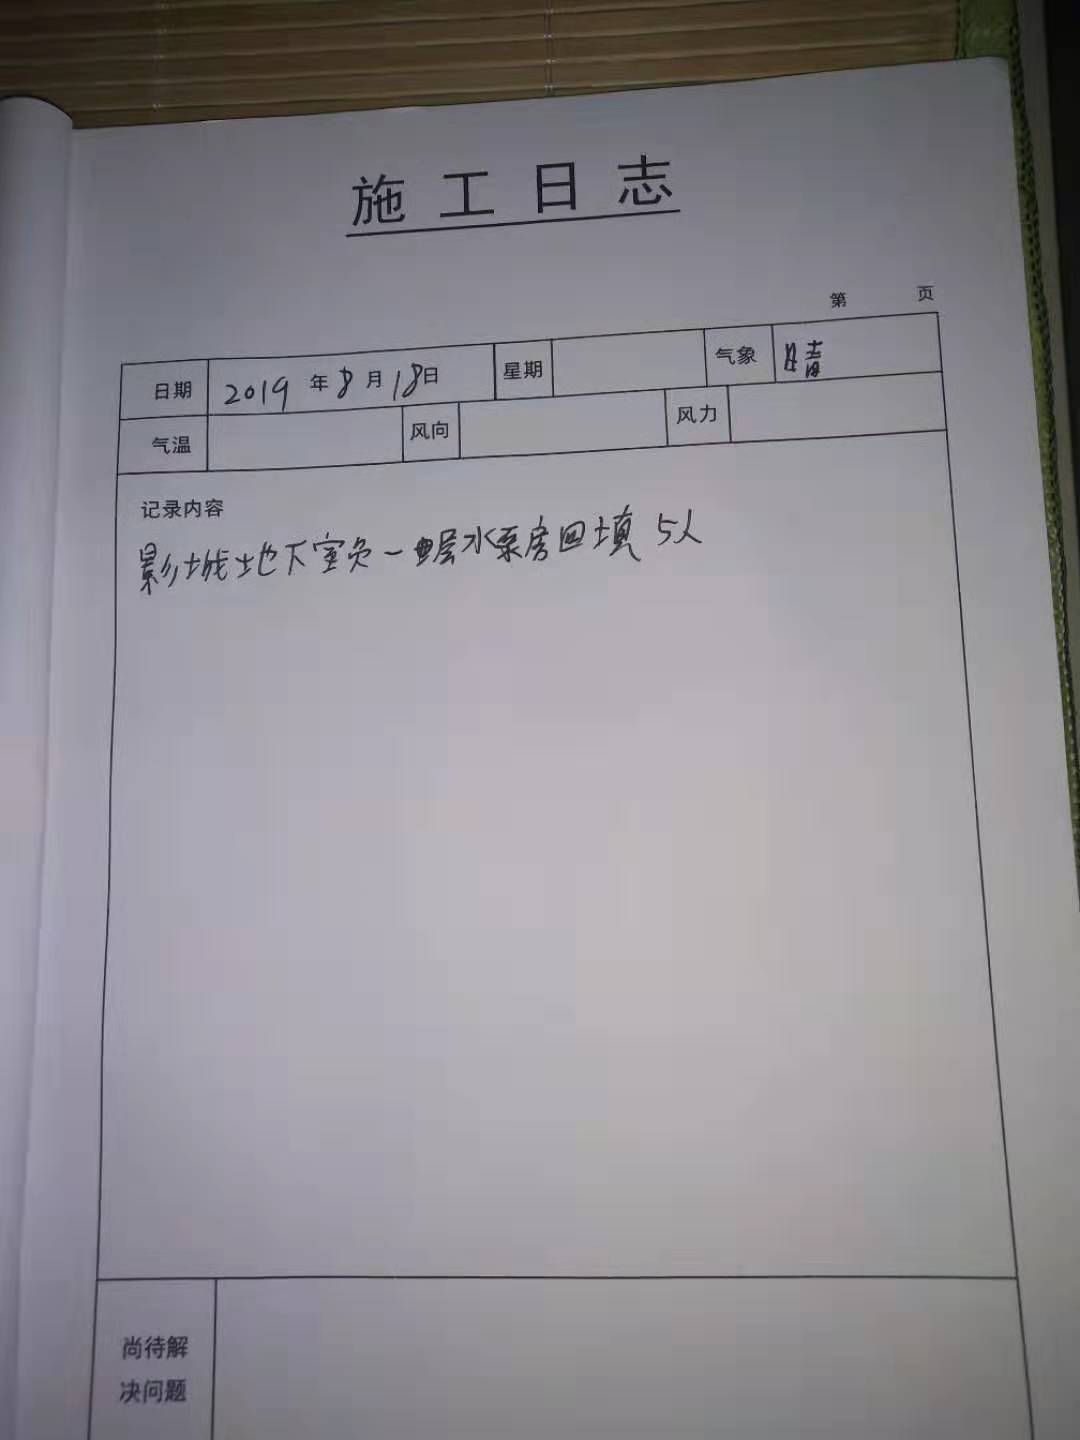 施工日志
第 页
日期 2019 年 8 月 18 日 星期 气象 晴
气温 风向 风力
记录内容
影城地下室负一层水泵房回填 5人
尚待解
决问题